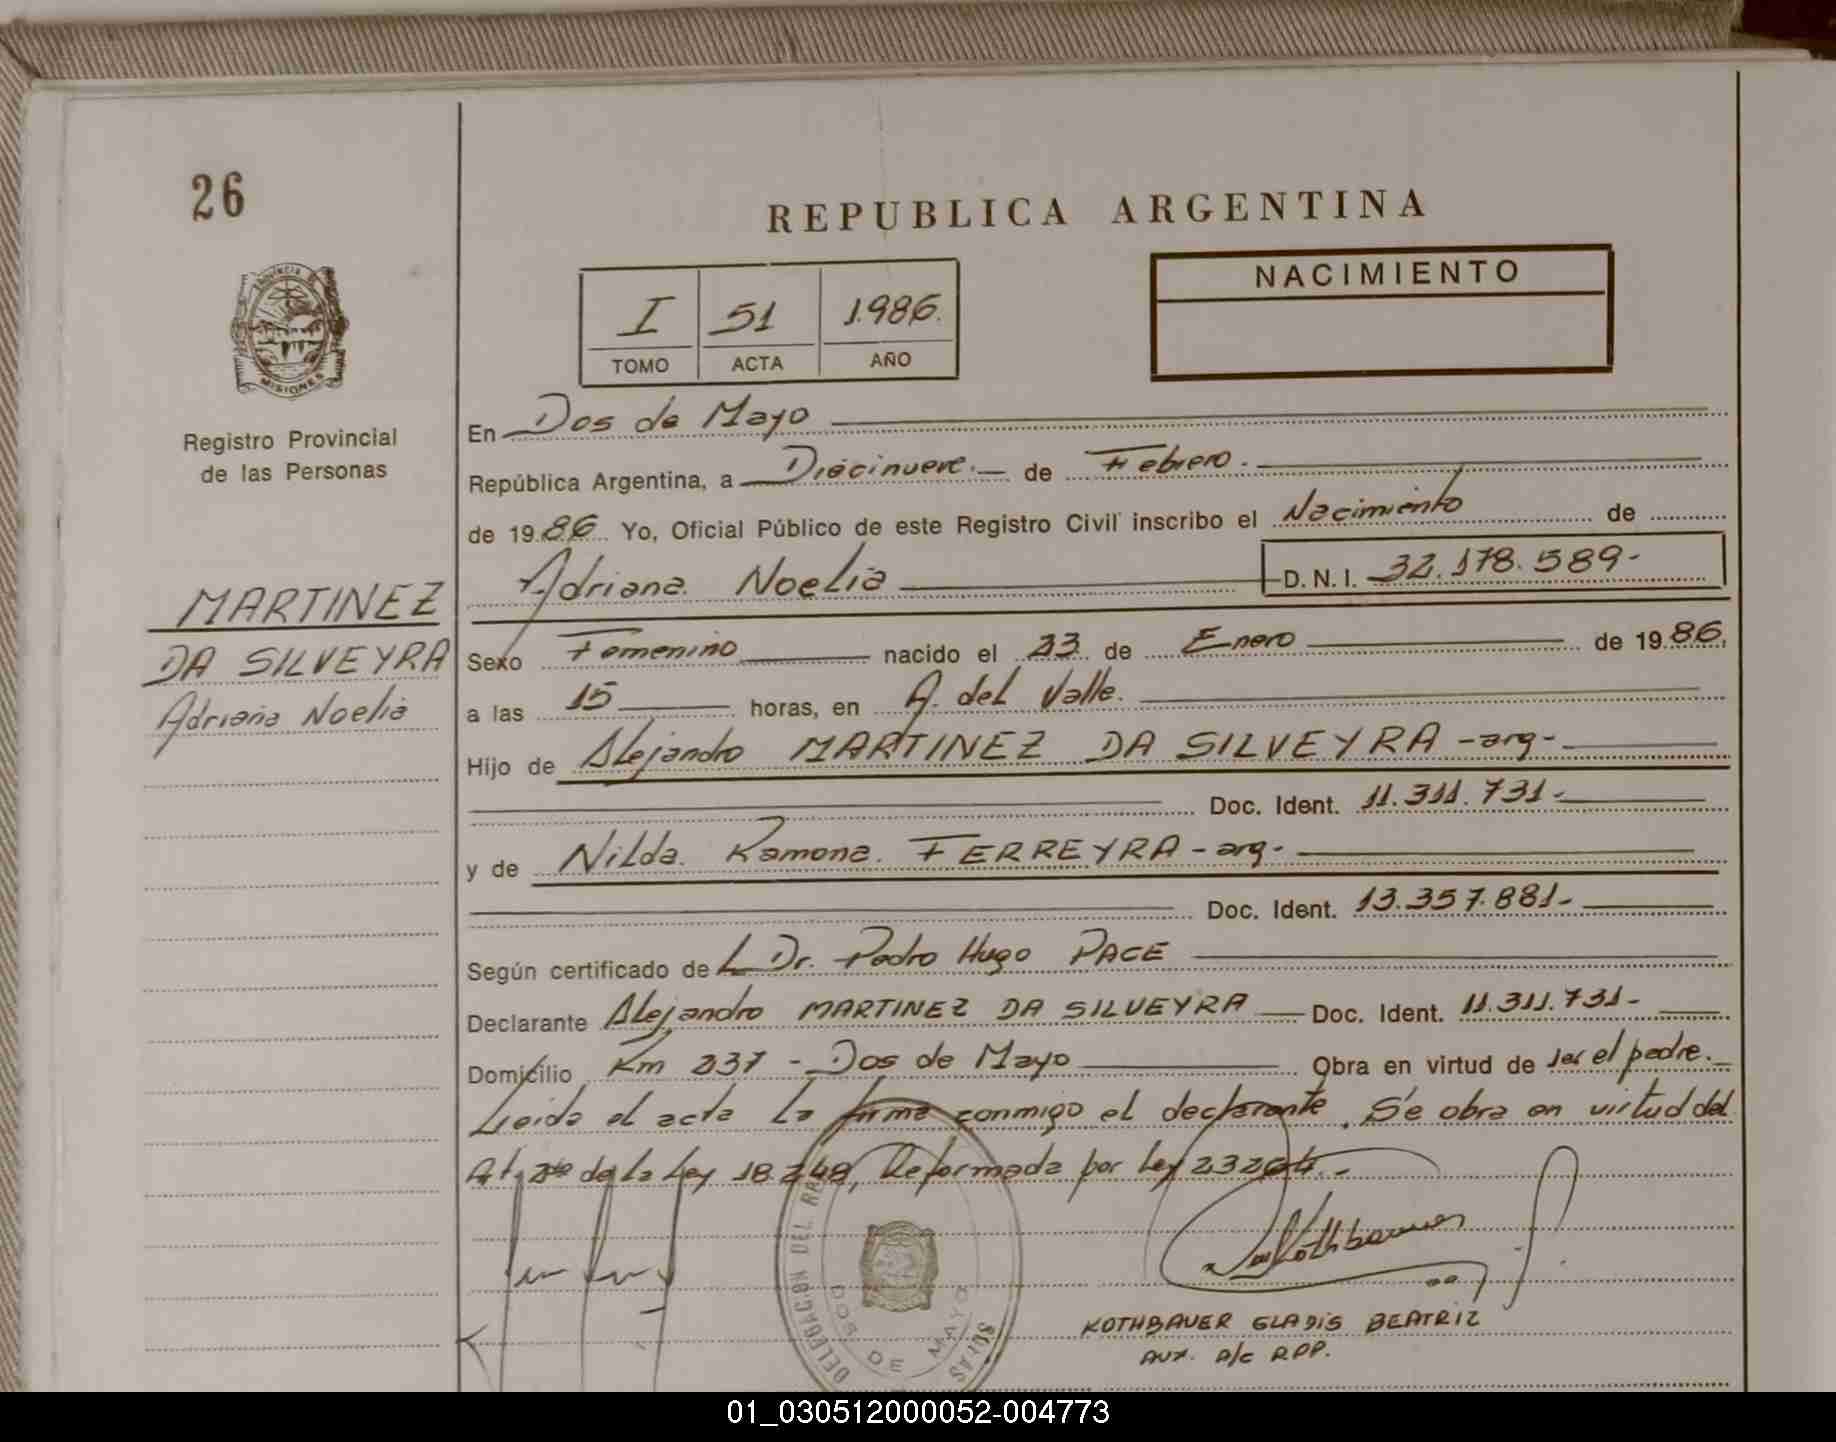 26
REPUBLICA ARGENTINA
NACIMIENTO
I 51 1.986.
TOMO ACTA AÑO
PROVINCIA DE
MISIONES
Registro Provincial
de las Personas
MARTINEZ
DA SILVEYRA
Adriana Noelia
En Dos de Mayo
República Argentina, a Diecinueve. de Febrero.
de 1986 Yo, Oficial Público de este Registro Civil inscribo el Nacimiento de
Adriana Noelia D. N. I. 32.178.589-
Sexo Femenino nacido el 23 de Enero de 1986.
a las 15 horas, en A. del Valle.
Hijo de Alejandro MARTINEZ DA SILVEYRA -arg-
Doc. Ident. 11.311.731-
y de Nilda Ramona FERREYRA -arg-
Doc. Ident. 13.357.881-
Según certificado de L Dr. Pedro Hugo PACE
Declarante Alejandro MARTINEZ DA SILVEYRA Doc. Ident. 11.311.731-
Domicilio Km 237 - Dos de Mayo Obra en virtud de ser el padre.
Leida el acta la firma conmigo el declarante. Se obra en virtud del
Art. 2do de la Ley 18.248, Reformada por Ley 23264.-
Kothbauer
DELEGACION DEL
DOS DE MAYO
KOTHBAUER GLADIS BEATRIZ
AUX. A/C RPP.
01_030512000052-004773